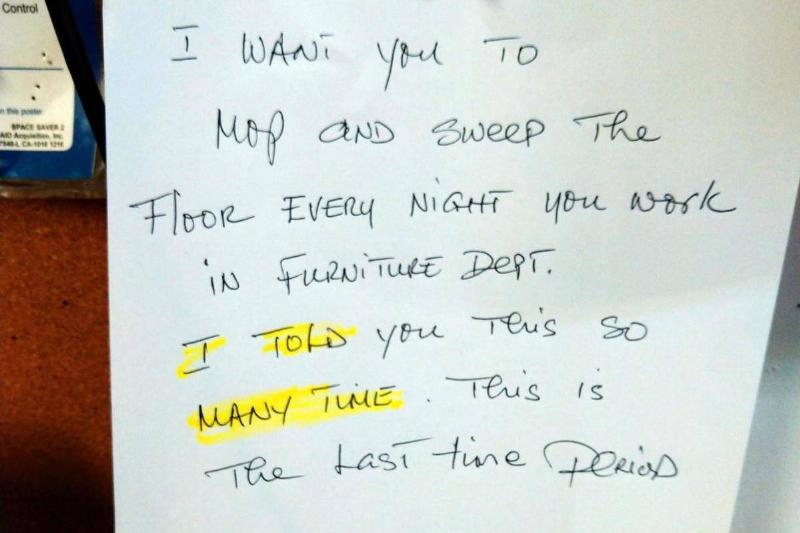 Control
n this poster
SPACE SAVER 2
AIO Acquisition, Inc.
CA-1016 1216
I WANT you TO
Mop AND SWEEP The
FlooR EVERY NIGHT you work
iN FURNITURE DEPT.
I TOLD you This SO
MANY TIME. This is
The Last time PERIOD